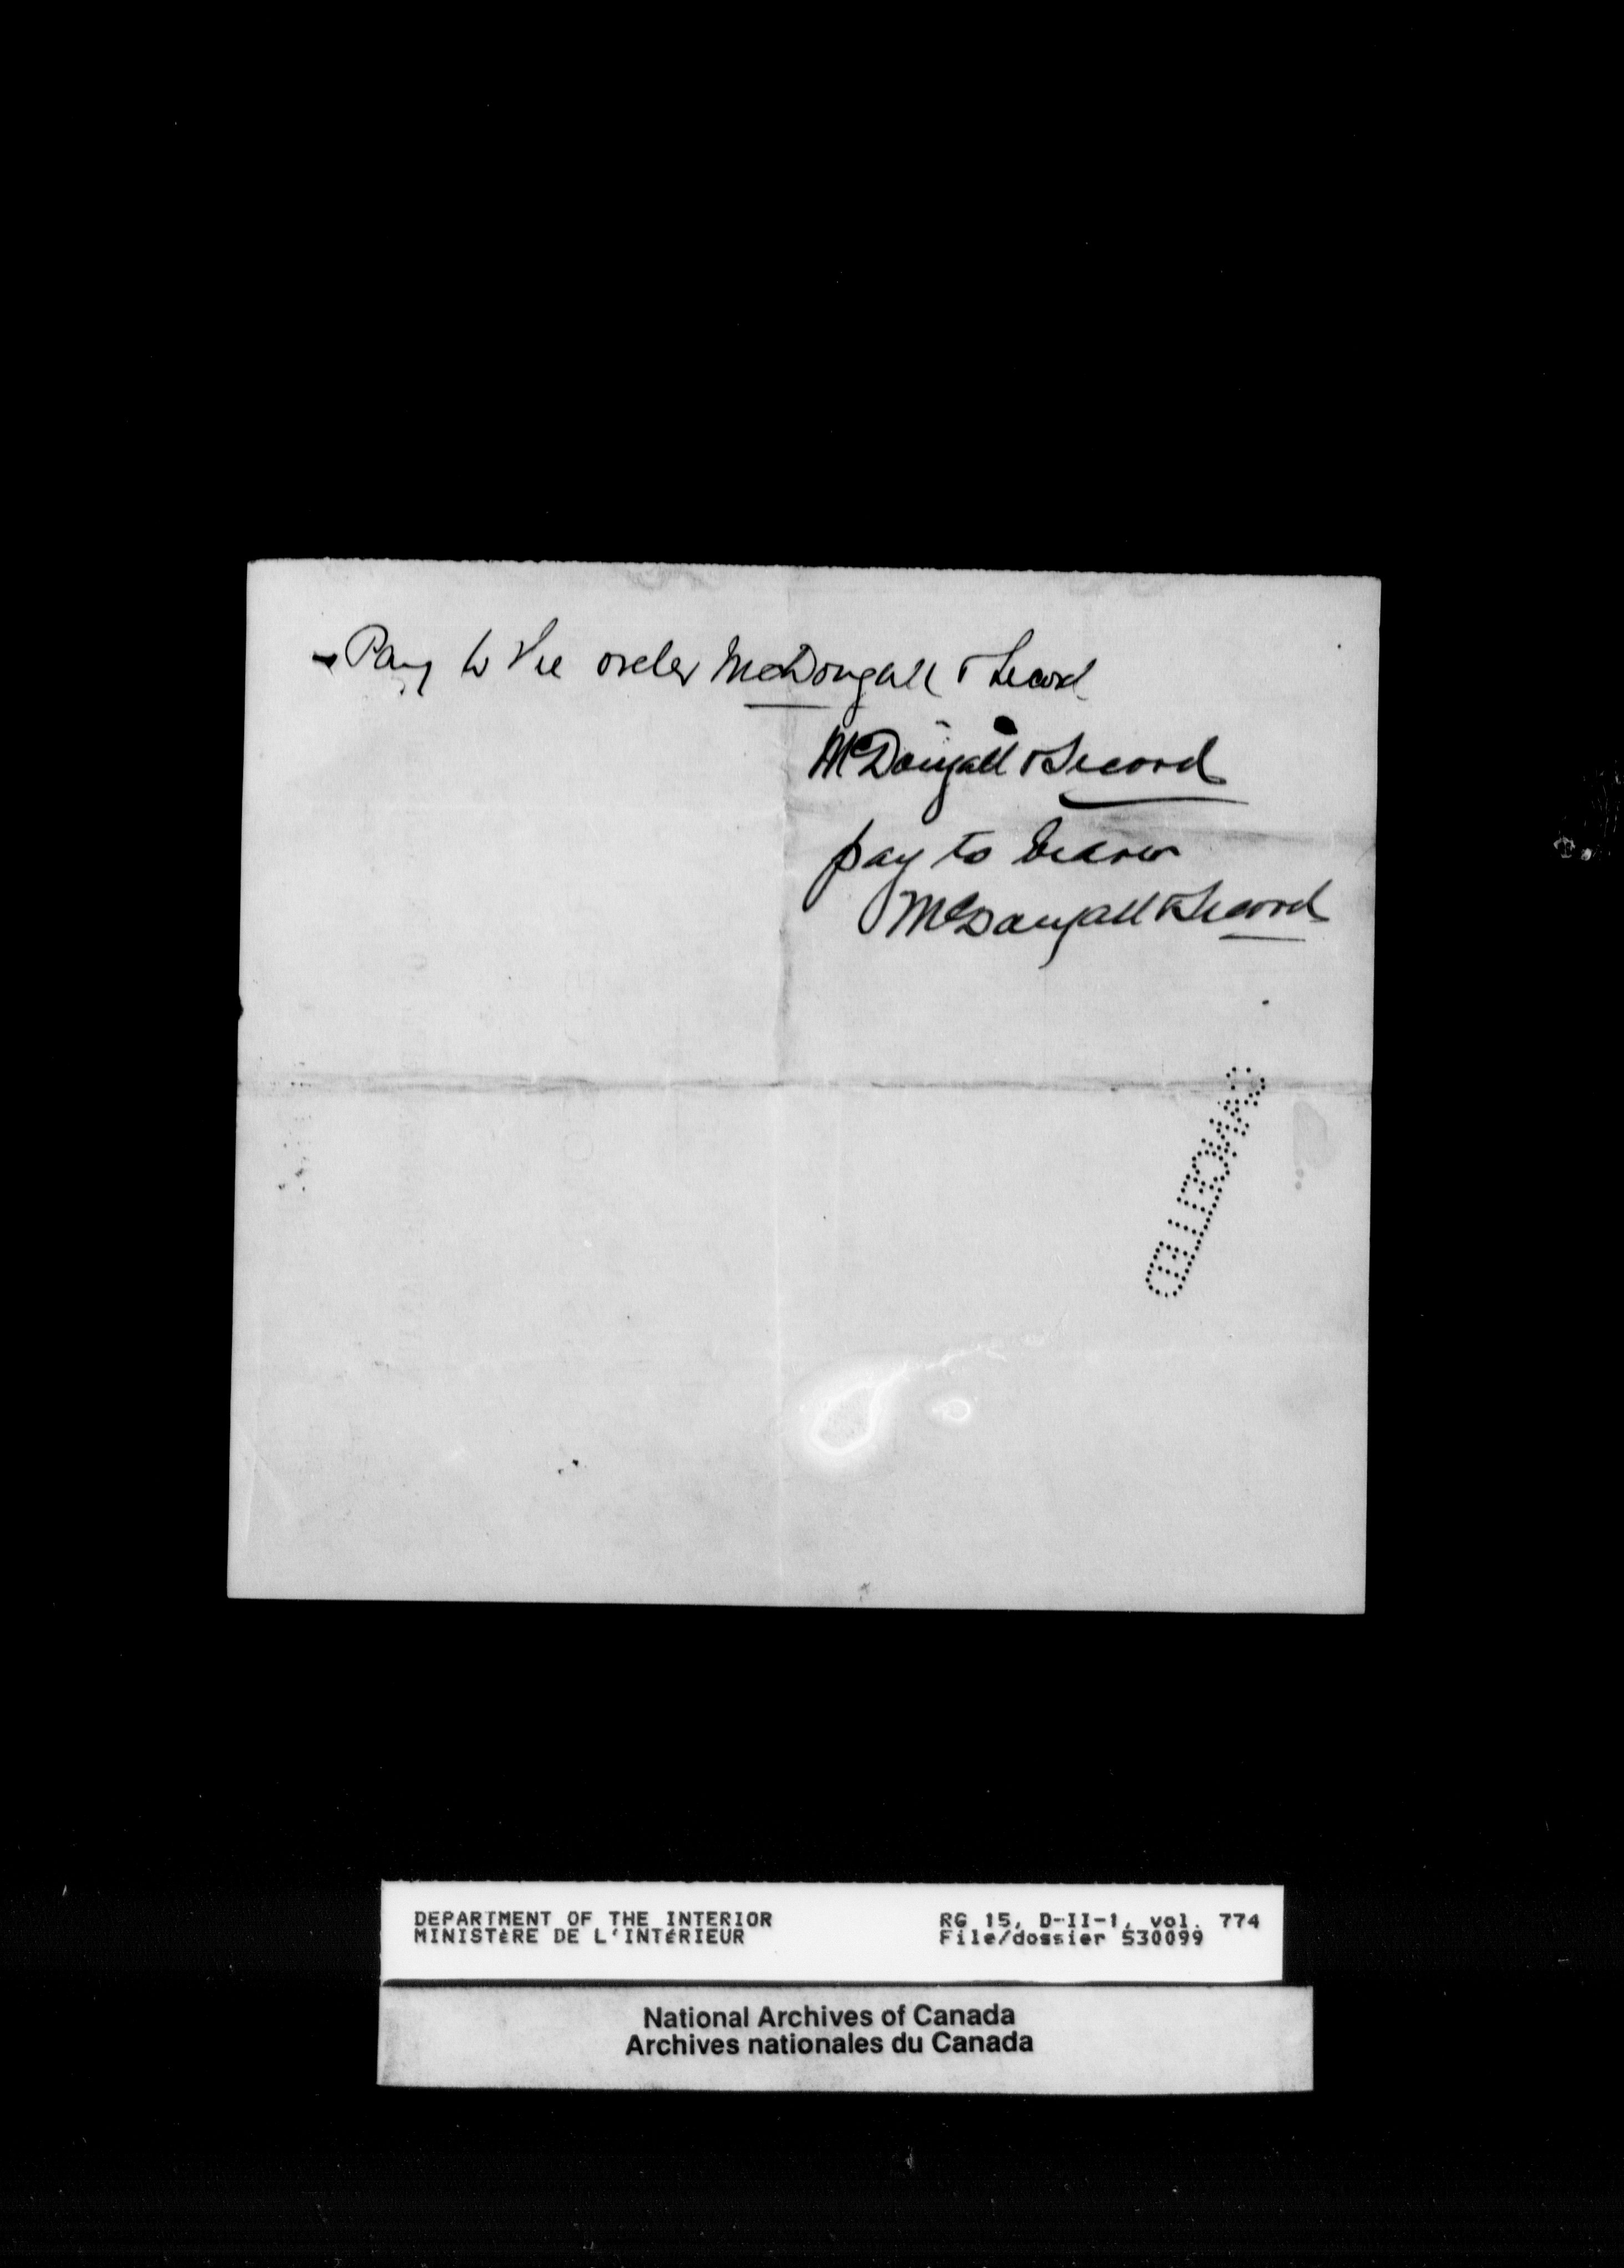 Pay to the order McDougall & Secord
McDougall & Secord
pay to bearer
McDougall & Secord
CANCELLED
DEPARTMENT OF THE INTERIOR
MINISTÈRE DE L'INTÉRIEUR
RG 15, D-II-1, vol. 774
File/dossier 530099
National Archives of Canada
Archives nationales du Canada